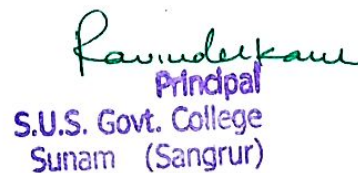 Ravinderkaur
Principal
S.U.S. Govt. College
Sunam (Sangrur)